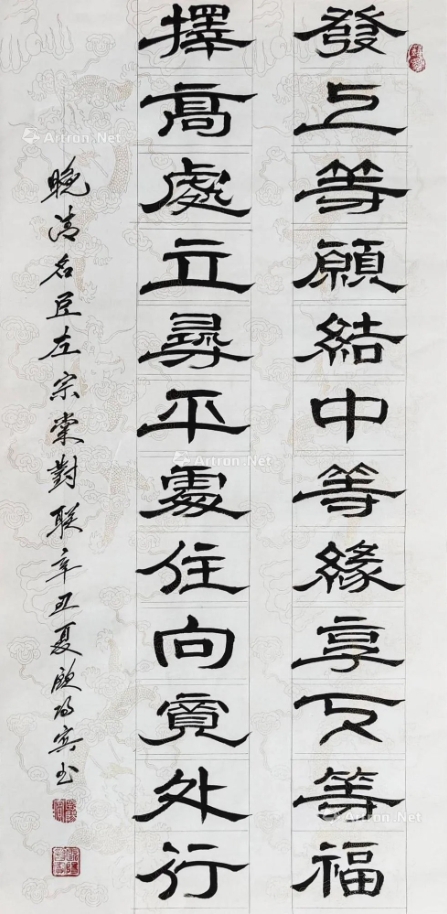 發上等願結中等緣享下等福
擇高處立尋平處住向寬外行
晚清名臣左宗棠對联辛丑夏宾书
Artron.Net
Artron.Net
Artron.Net
Artron.Net
Artron.Net